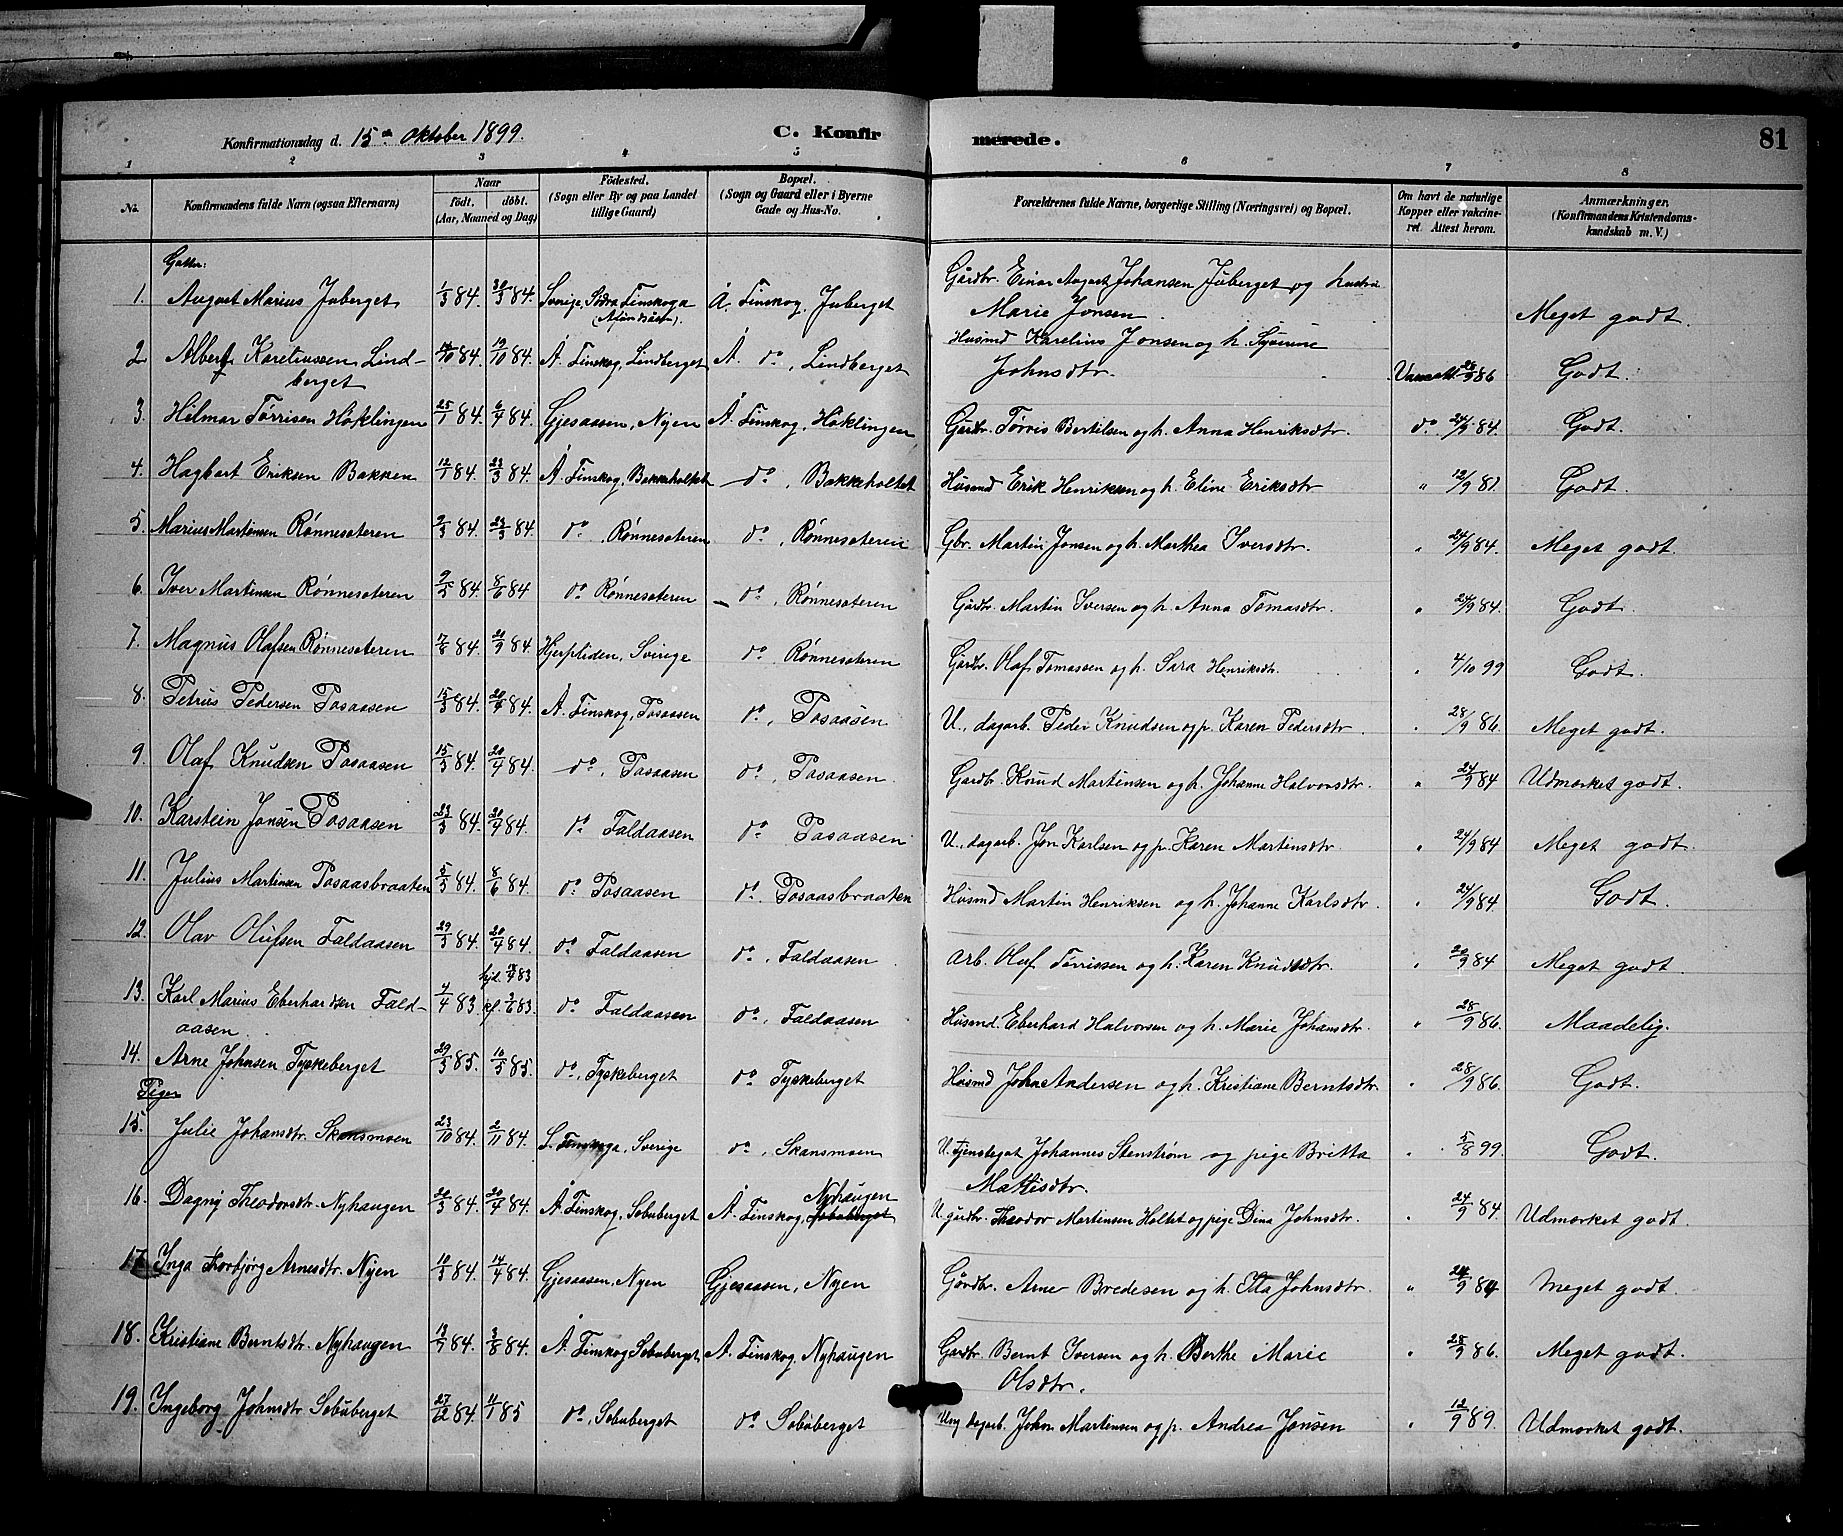 Konfirmationsdag d. 15de Oktober 1899.
C. Konfirmerede.
81
1 2 3 4 5 6 7 8
No.
Konfirmandens fulde Navn (ogsaa Efternavn)
Naar
födt. döbt.
(Aar, Maaned og Dag)
Födested.
(Sogn eller By og paa Landet
tillige Gaard)
Bopæl.
(Sogn og Gaard eller i Byerne
Gade og Hus-No.
Forældrenes fulde Navne, borgerlige Stilling (Næringsvei) og Bopæl.
Om havt de naturlige
Kopper eller vakcine-
ret. Attest herom.
Anmærkninger.
(Konfirmandens Kristendoms-
kundskab m. V.)
Gutter:
1. August Marius Juberget 1/3 84. 30/3 84. Sverige, Södra Finskoga Å. Finskog, Juberget Gårdbr. Einar August Johansen Juberget og hustru
Marie Jonsen Meget godt.
2 Albert Kareliussen Lind-
berget 10 84. 19/10 84. Å. Finskog, Lindberget Å. do, Lindberget Husmd Karelius Jonsen og h. Syverine
Johnsdtr. 26/9 86 Godt.
3. Hilmar Tørrisen Höklingen 25/1 84. 6/4 84. Gjesaasen, Nyen Å. Finskog, Höklingen Gårdbr. Tørris Bertilsen og h. Anna Henriksdtr. do 24/9 84. Godt.
4. Hagbart Eriksen Bakken 12/1 84. 23/3 84. Å. Finskog, Bakkeholtet do, Bakkeholtet Husmd Erik Henriksen og h. Eline Eriksdtr " 12/9 81. Godt.
5. Marius Martinsen Rønnesæteren 9/3 84. 23/3 84. do, Rønnesæteren do, Rønnesæteren Gbr. Martin Jonsen og h. Marthea Iversdtr. " 24/9 84. Meget godt.
6. Iver Martinsen Rønnesæteren 9/5 84. 8/6 84 do Rønnesæteren do, Rønnesæteren Gårdbr. Martin Iversen og h. Anna Tomasdtr. " 24/9 84. Godt.
7. Magnus Olafsen Rønnesæteren 7/8 84. 20/9 84. Hjerpliden, Sverige do, Rønnesæteren Gårdbr. Olaf Tomassen og h. Sara Henriksdtr. " 4/10 99 Godt.
8. Petrus Pedersen Posaasen 15/3 84. 20/4 84. Å. Finskog, Posaasen do, Posaasen U., dagarb. Peder Knudsen og p. Karen Pedersdtr " 28/9 86. Meget godt.
9. Olaf Knudsen Posaasen 15/3 84. 20/4 84. do, Posaasen do, Posaasen. Gardbr. Knud Martinsen og h. Johanne Halvorsdtr. " 24/9 84 Udmærket godt.
10. Karstein Jonsen Posaasen 23/3 84. 20/4 84. do Faldaasen do Posaasen U., dagarb. Jon Karlsen og p. Karen Martinsdtr. " 24/9 84 Meget godt.
11. Julius Martinsen Posaasbraaten 5/5 84. 8/6 84. do Posaasen do, Posaasbraaten Husmd Martin Henriksen og h. Johanne Karlsdtr. " 24/9 84. Godt.
12. Olav Olufsen Faldaasen 29/3 84. 20/4 84. do Faldaasen do, Faldaasen Arb. Olaf Tørrissen og h. Karen Knudsdtr. " 84 Meget godt.
13. Karl Marius Eberhardsen Fald-
aasen. 7/4 83 hjd. 83 kf. 83. do Faldaasen do, Faldaasen Husmd. Eberhard Halvorsen og h. Marie Johansdtr. " 28/9 86. Maadelig.
14. Arne Johnsen Tyskeberget 29/3 85. 10/5 85. do, Tyskeberget do, Tyskeberget Husmd John Andersen og h. Kristiane Berntsdtr. " 28/9 86. Godt.
Piger
15. Julie Johansdtr. Skansmoen 23/10 84. 2/11 84. S. Finskoga, Sverige do, Skansmoen U. Tjenstegut Johannes Stenstrøm og pige Britta
Mattisdtr. " 5/8 99. Godt.
16. Dagny Theodorsdtr. Nyhaugen 20/3 84. 20/4 84. Å. Finskog, Sebuberget Nyhaugen
Å. Finskog, Sebuberget U. gårdbr. Theodor Martinsen Holtet og pige Dina Johnsdtr. " 24/9 84. Udmærket godt.
17 Inga Thorbjørg Arnesdtr. Nyen 84. 14/4 84. Gjesaasen, Nyen Gjesaasen, Nyen Gårdbr. Arne Bredesen og h. Ida Johnsdtr. " 84 Meget godt.
18. Kristiane Berntsdtr. Nyhaugen 13/7 84. 3/8 84. Å. Finskog, Sebuberget Å. Finskog, Nyhaugen Gårdbr. Bernt Iversen og h. Berthe Marie
Olsdtr. " 28/9 86. Meget godt.
19. Ingeborg Johnsdtr Sebuberget 27/12 84. 11/1 85 do, Sebuberget do Sebuberget Ung dagarb. John Martinsen og p. Andrea Jonsen " 12/9 89. Udmærket godt.